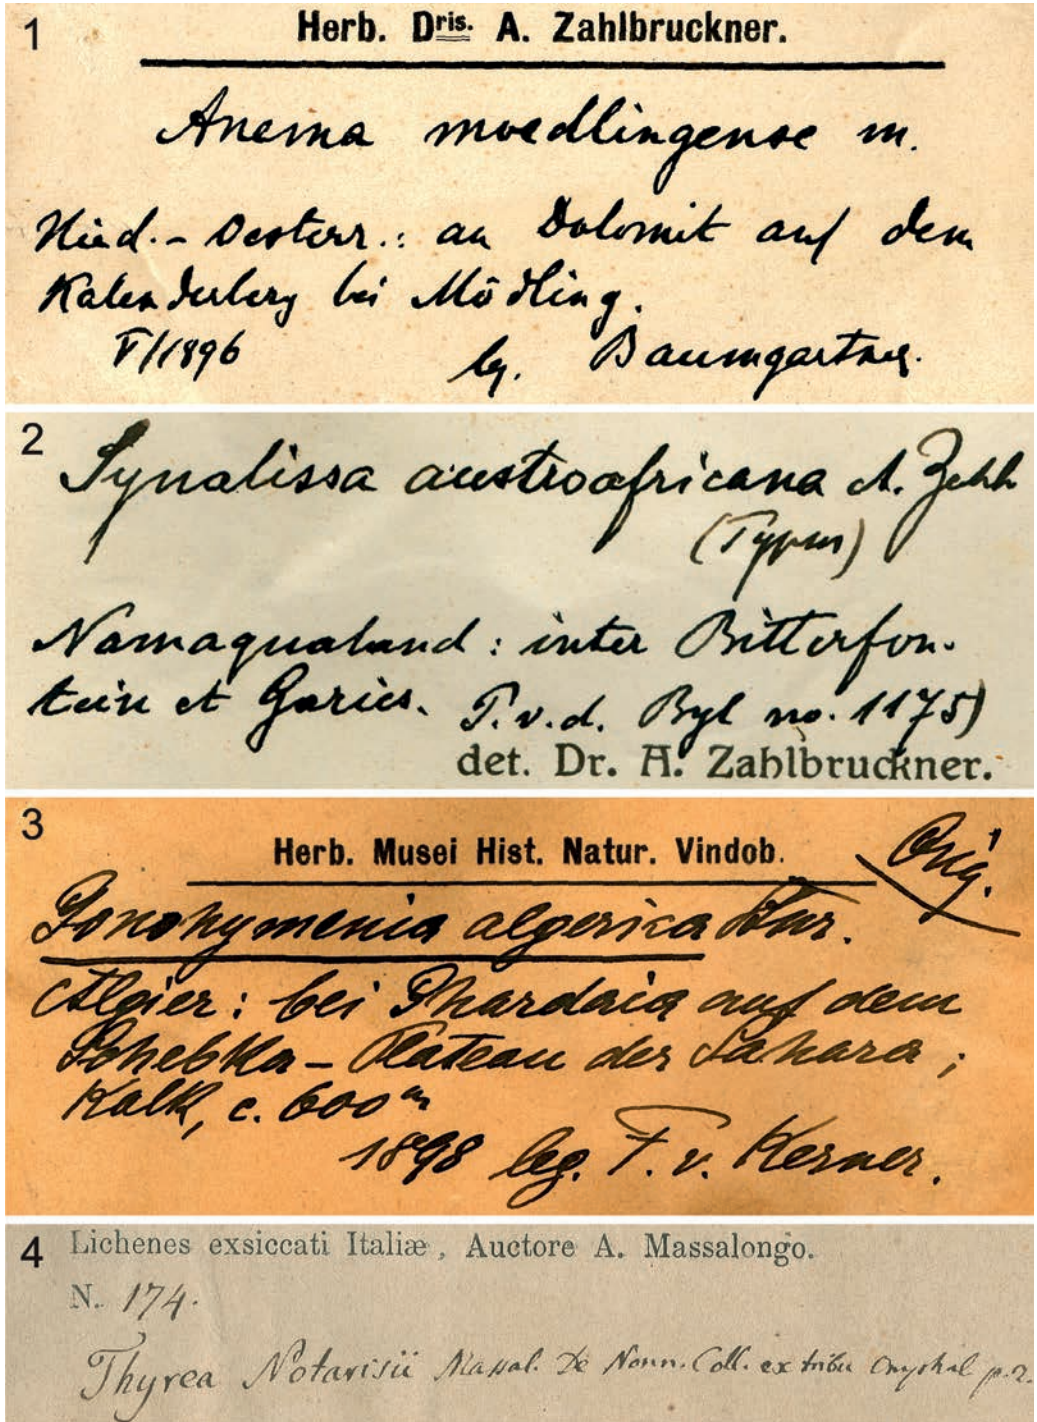 1
Herb. Dris. A. Zahlbruckner.
Anema moedlingense m.
Nied.-Oesterr.: an Dolomit auf dem
Kalenderberg bei Mödling.
V/1896 lg. Baumgartner.
2
Synalissa austroafricana A. Zahlb
(Typus)
Namaqualand: inter Bitterfon-
tein et Garies. P.v.d. Byl no. 1175)
det. Dr. A. Zahlbruckner.
3
Herb. Musei Hist. Natur. Vindob.
Orig.
Gonohymenia algerica Stnr.
Algier: bei Ghardaia auf dem
Schebka-Plateau der Sahara;
Kalk, c. 600 m
1898 leg. F. v. Kerner.
4
Lichenes exsiccati Italiæ, Auctore A. Massalongo.
N. 174.
Thyrea Notarisii Massal. De Nonn. Coll. ex tribu p. 2.